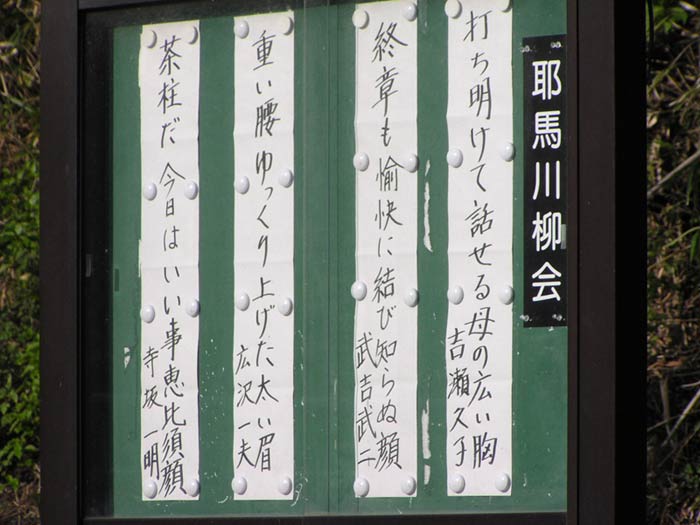 耶馬川柳会
打ち明けて話せる母の広い胸
吉瀬久子
終章も愉快に結び知らぬ顔
武吉武二
重い腰ゆっくり上げた太い眉
広沢一夫
茶柱だ今日はいい事恵比須顔
寺坂一明